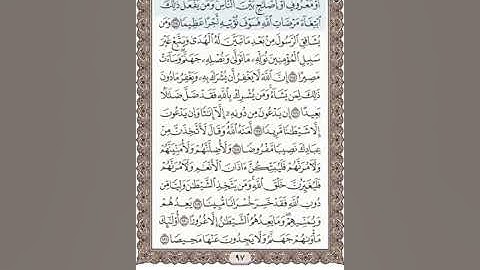 أَوْ مَعْرُوفٍ أَوْ إِصْلَٰحٍۭ بَيْنَ ٱلنَّاسِ وَمَن يَفْعَلْ ذَٰلِكَ
ٱبْتِغَآءَ مَرْضَاتِ ٱللَّهِ فَسَوْفَ نُؤْتِيهِ أَجْرًا عَظِيمًا ١١٤ وَمَن
يُشَاقِقِ ٱلرَّسُولَ مِنۢ بَعْدِ مَا تَبَيَّنَ لَهُ ٱلْهُدَىٰ وَيَتَّبِعْ غَيْرَ
سَبِيلِ ٱلْمُؤْمِنِينَ نُوَلِّهِۦ مَا تَوَلَّىٰ وَنُصْلِهِۦ جَهَنَّمَ وَسَآءَتْ
مَصِيرًا ١١٥ إِنَّ ٱللَّهَ لَا يَغْفِرُ أَن يُشْرَكَ بِهِۦ وَيَغْفِرُ مَا دُونَ
ذَٰلِكَ لِمَن يَشَآءُ وَمَن يُشْرِكْ بِٱللَّهِ فَقَدْ ضَلَّ ضَلَٰلًۢا
بَعِيدًا ١١٦ إِن يَدْعُونَ مِن دُونِهِۦٓ إِلَّآ إِنَٰثًا وَإِن يَدْعُونَ
إِلَّا شَيْطَٰنًا مَّرِيدًا ١١٧ لَّعَنَهُ ٱللَّهُ وَقَالَ لَأَتَّخِذَنَّ مِنْ
عِبَادِكَ نَصِيبًا مَّفْرُوضًا ١١٨ وَلَأُضِلَّنَّهُمْ وَلَأُمَنِّيَنَّهُمْ
وَلَءَامُرَنَّهُمْ فَلَيُبَتِّكُنَّ ءَاذَانَ ٱلْأَنْعَٰمِ وَلَءَامُرَنَّهُمْ
فَلَيُغَيِّرُنَّ خَلْقَ ٱللَّهِ وَمَن يَتَّخِذِ ٱلشَّيْطَٰنَ وَلِيًّا مِّن
دُونِ ٱللَّهِ فَقَدْ خَسِرَ خُسْرَانًا مُّبِينًا ١١٩ يَعِدُهُمْ
وَيُمَنِّيهِمْ وَمَا يَعِدُهُمُ ٱلشَّيْطَٰنُ إِلَّا غُرُورًا ١٢٠ أُو۟لَٰٓئِكَ
مَأْوَىٰهُمْ جَهَنَّمُ وَلَا يَجِدُونَ عَنْهَا مَحِيصًا ١٢١
٩٧